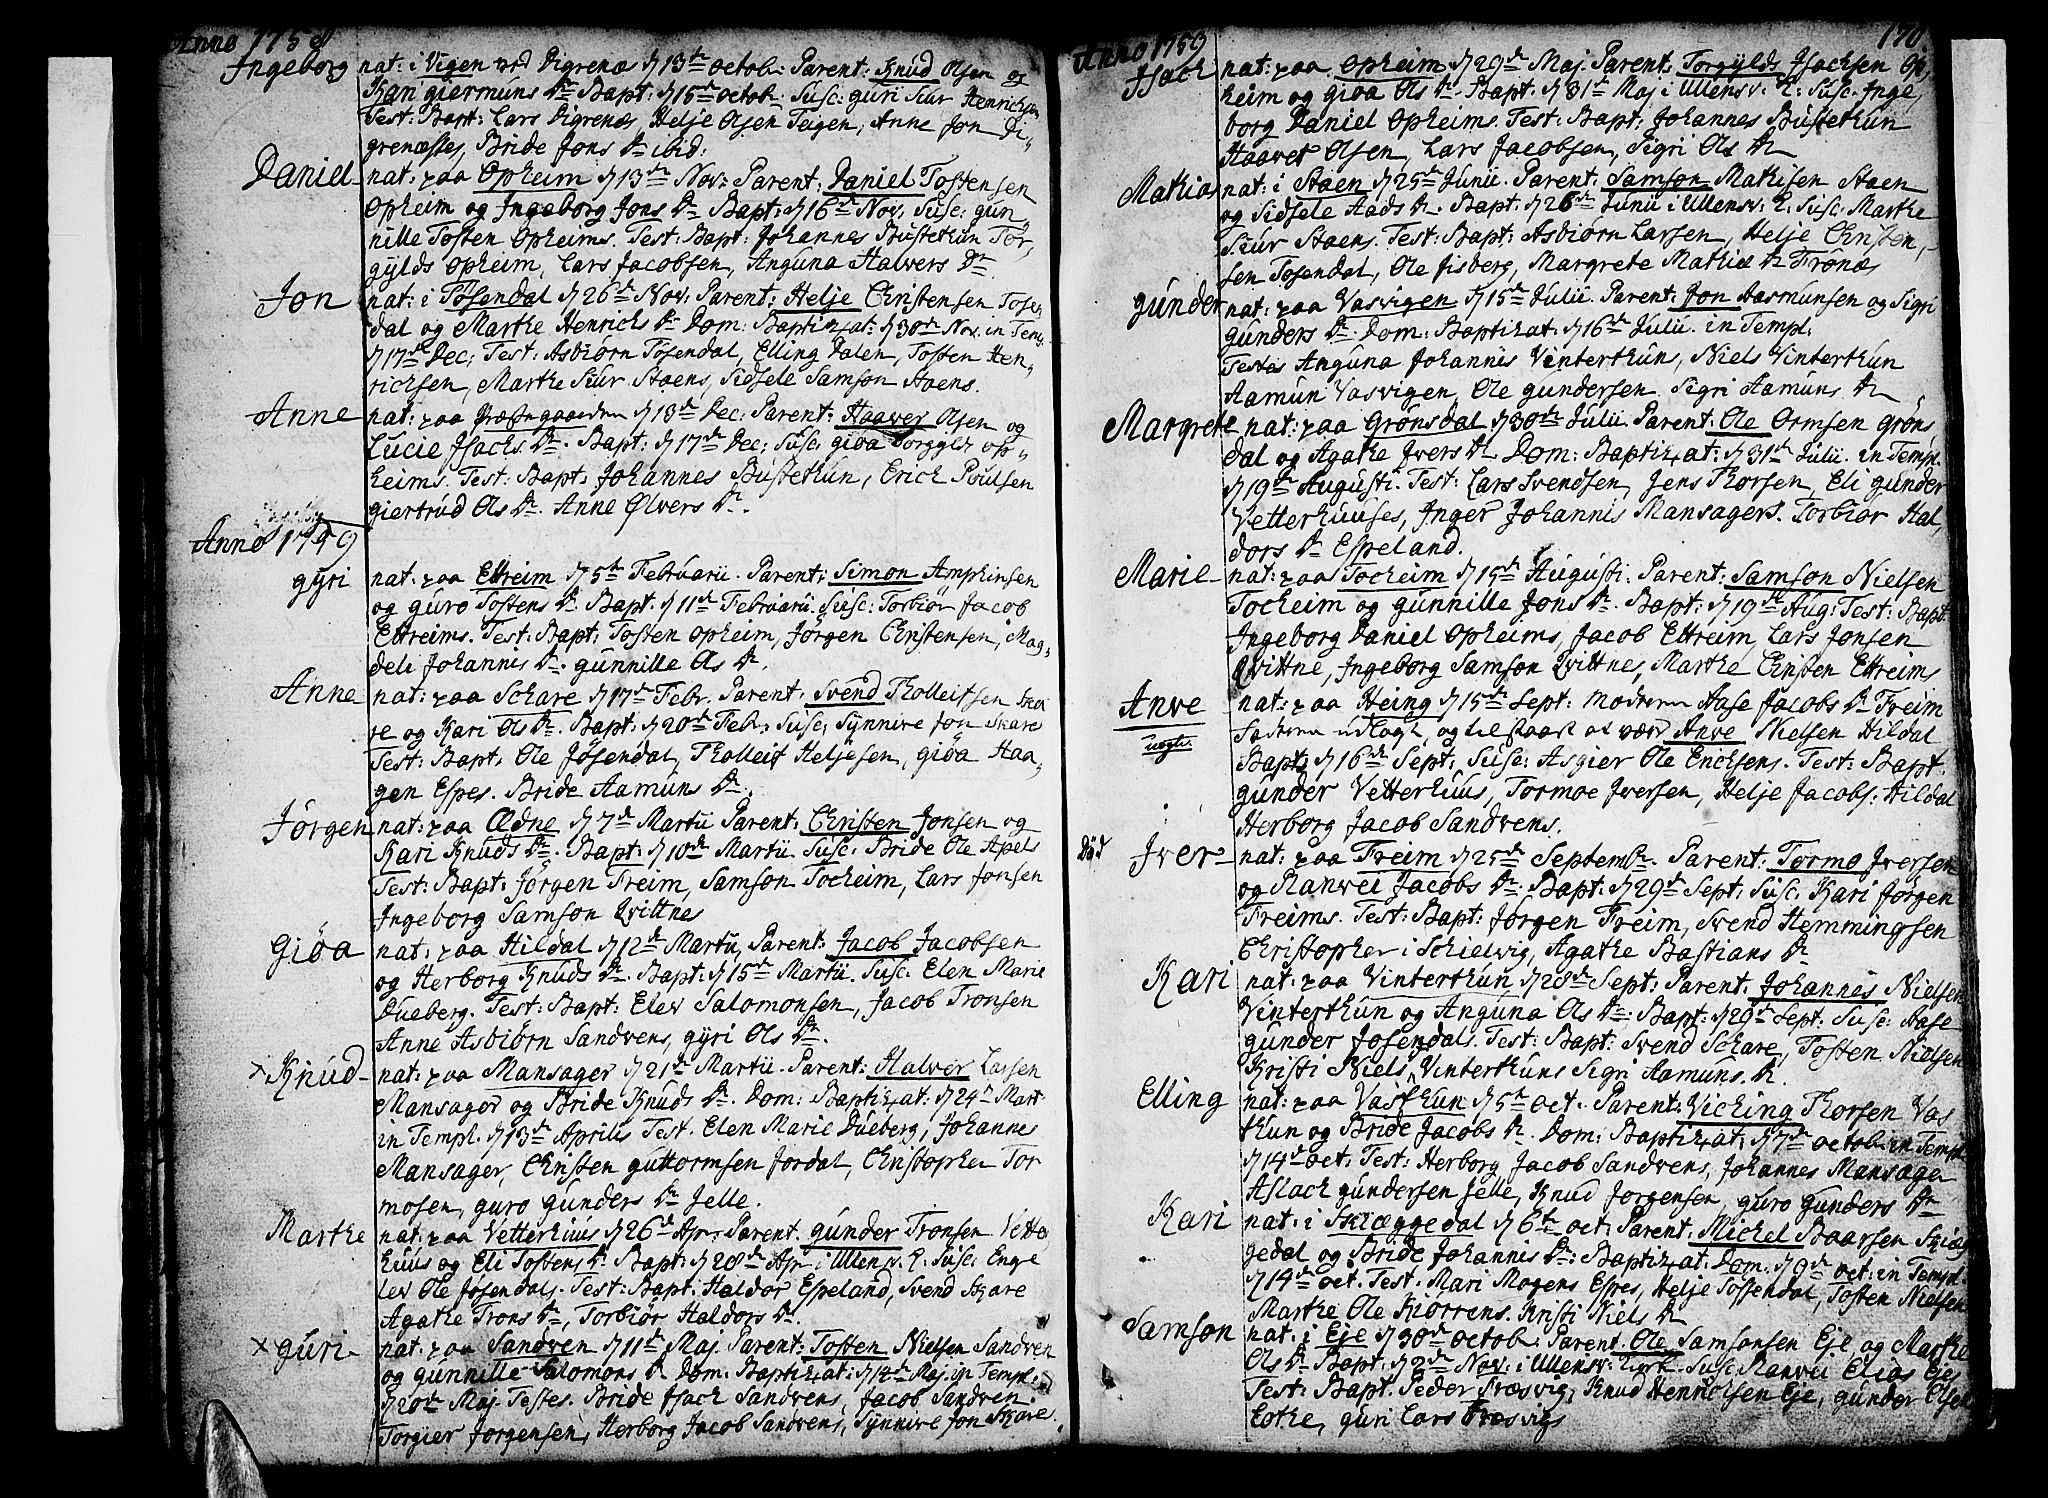 Anno 1758
Ingeborg nat: i Vigen ved Digrenæs d 13de Octob: Parent: Knud Olsen og
Kari giermuns Dr Bapt: d 15de octob: Susc: guri Siur Henrichsen
Test: Bapt: Lars Digrenæs Helje Olsen Teigen, Anne Jon Di-
grenæsses, Bride Jons Dr ibid:
Daniel nat: paa Opheim d 13de Nov: Parent: Daniel Tostensen
Opheim og Ingeborg Jons Dr Bapt: d 16de Nov: Susc: gun,
nille Tosten Opheims. Test: Bapt: Johannes Bustethun Tor,
gylds opheim, Lars Jacobsen, Anguna Halvers Dr
Jon nat: i Tösendal d 26de Nov: Parent: Helje Christensen Tosen
dal og Marthe Henrichs Dr Dom: Baptizat: d 30de Nov. in Temp.
d 17de Dec: Test: Asbiørn Tösendal, Elling Dalen, Tosten Hen,
richsen, Marthe Siur Staens, Sidsele Samson Staens.
Anne nat: paa Præstegaarden d 13de Dec: Parent: Haaver Olsen og
Lucie Jsachs Dr. Bapt: d 17de Dec: Susc: giøa Torgyld op,
heims. Test: Bapt: Johannes Bustethun, Erich Poulsen
giertrud Ols Dr. Anne Ølvers Dr.
Anno 1759
gyri nat: paa Ettreim d 5te Februarii. Parent: Simon Amphinsen
og guro Tostens Dr. Bapt. d 11de Februarii. Susc: Torbiør Jacob
Ettreims. Test: Bapt: Tosten opheim, Jörgen Christensen, Mag,
deli Johannis Dr. gunnille Ols Dr.
Anne nat: paa Schare d 17de Febr. Parent: Svend Tholleitsen Ska
re og Kari Ols Dr. Bapt: d 20de Feb: Susc: Synnive Jon Skare
Test: Bapt: Ole Jösendal, Tholleif Heljesen, giøa Haa,
gen Espes. Bride Aamuns Dr.
Jörgen nat: paa Ædne d 7de Martii Parent: Christen Jonsen og
Kari Knuds Dr. Bapt: d 10de Martii. Susc: Bride Ole Apels
Test: Bapt: Jörgen Freim, Samson Tocheim, Lars Jonsen
Ingeborg Samson Qvittnes
Giøa nat: paa Hildal d 12de Martii, Parent: Jacob Jacobsen
og Herborg Knuds Dr. Bapt: d 15de Martii. Susc: Elen Marie
Dueberg. Test: Bapt: Elev Salomonsen, Jacob Tronsen
Anne Asbiörn Sandvens, gyri Ols Dr.
x Knud nat: paa Mansager d 21de Martii. Parent: Halver Larsen
Mansager og Bride Knuds Dr. Dom: Baptizat: d 24de Mart
in Templ. d 13de Aprilis Test. Elen Marie Dueberg, Johannes
Mansager, Christen guttormsen Jordal, Christopher Tor
mosen, guro gunders Dr Jelle.
Marthe nat: paa Vetterhuus d 26de Apr. Parent: gunder Tronsen Vetter
huus og Eli Tostens Dr Bapt: d 28de Apr i Ullensv. K. Susc: Enge
lev Ole Jøsendals. Test: Bapt: Haldor Espeland, Svend Skare
Agathe Trons Dr, Torbiør Haldors Dr.
x guri nat: paa Sandven d 11te Maj Parent: Tosten Nielsen Sandven
og gunnille Salomons Dr Dom: Baptizat: d 14de Maj. in Templ.
d 20de Maj. Testes. Bride Jsach Sandvens, Jacob Sandven
Torgier Jorgensen, Herborg Jacob Sandvens, Synnive Jon Skare
Anno 1759 170.
Jsach nat: paa Opheim d 29de Maj. Parent: Torgylds Jsachsen Op,
heim og giøa Ols Dr. Bapt: d 31te Maj i Ullensv: K: Susc: Inge,
borg Daniel Opheims. Test: Bapt: Johannes Bustethun
Haaver Olsen, Lars Jacobsen, Sigri Ols Dr
Mathias nat: i Staen d 25de Junii. Parent: Samson Mathisen Staen
og Sidsele Aads Dr. Bapt: d 26de Junii i Ullensv: K: Susc: Marthe
Siur Staens. Test: Bapt: Asbiørn Larsen, Helje Christen,
sen Tosendal, Ole Jisberg, Margrete Mathiæ Dr Fronæs
gunder nat: paa Vasvigen d 15de Julii. Parent: Jon Aasmunsen og Sigri
gunders Dr. Dom: Baptizat: d 16de Julii. in Templ:
Testes Anguna Johannis Vinterthuns, Niels Vinterthun
Aamun Vasvigen, Ole gundersen. Sigri Aamuns Dr
Margrete nat: paa Grönsdal d 30de Julii. Parent: Ole Ormsen Gröns
dal og Agathe Jvers Dr. Dom: Baptizat: d 31te Julii. in Templ.
d 19de Augusti. Test: Lars Svendsen, Jens Thorsen, Eli gunder
Vetterhuuses, Jnger Johannis Mansagers. Torbiør Hal,
dors Dr Espeland.
Marie nat: paa Tocheim d 15de Augusti: Parent: Samson Nielsen
Tocheim og gunnille Jons Dr. Bapt: d 19de Aug: Test: Bapt.
Ingeborg Daniel Opheims, Jacob Ettreim, Lars Jonsen
Qvittne, Ingeborg Samson Qvittnes, Marthe Christen Ettreims
Anve nat: paa Heing d 15de Sept: Moderen Aase Jacobs Dr Freim
uægte Faderen udlagt, og tilstaaet at være Anve Nielsen Hildal
Bapt: d 16de Sept: Susc: Asgier Ole Erichsens. Test: Bapt.
gunder Vetterhuus, Tormoe Jversen, Helje Jacobs: Hildal
Herborg Jacob Sandvens.
död Jver nat: paa Freim d 25de Septembr. Parent: Tormo Jversen
og Ranvei Jacobs Dr: Bapt: d 29de Sept: Susc: Kari Jörgen
Freims. Test: Bapt: Jörgen Freim, Svend Hemmingsen
Christopher i Schielvig, Agathe Bastians Dr
Kari nat: paa Vinterthun d 28de Sept: Parent: Johannes Nielsen
Vinterthun og Anguna Ols Dr: Bapt: d 29de Sept: Susc: Aase
gunder Josendals. Test: Bapt: Svend Schare, Tosten Nielsen
Kristi Niels Vinterthuns Sigri Aamuns Dr.
Elling nat: paa Vasthun d 5te Oct. Parent: Viching Thorsen Vas
thun og Bride Jacobs Dr. Dom: Baptizat: d 7de October in Templ
d 14de Oct: Test: Herborg Jacob Sandvens, Johannes Mansager
Aslach gundersen Jelle, Knud Jorgensen, guro gunders Dr
Kari nat: i Skiæggedal d 6te Oct: Parent: Michel Baarsen Skiæg
gedal og Bride Johannis Dr: Baptizat. Dom. d 9de oct: in Templ:
d 14de oct. Test. Mari Mogens Espes, Helje Tossendal, Tosten Nielsen
Marthe Ole Kiorrens. Kristi Niels Dr
Samson nat: i Eje d 30de Octob: Parent: Ole Samsonsen Eje, og Marthe
Ols Dr Bapt: d 2den Nov: i Ullensv: Kirk: Susc: Ranvei Elias Ejes
Test: Bapt. Peder Træsvig, Knud Henrichsen Eje, gunder Olsen
Lothe, guri Lars Træsvigs